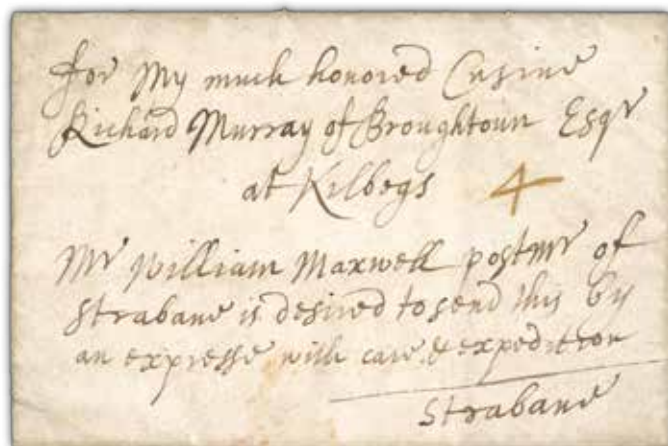 for My much honored Cusine
Richard Murray of Broughtoun Esqr
at Kilbegs 4
Mr William Maxwell postmr of
Strabane is desired to send this by
an expresse with care & expedition
Strabane